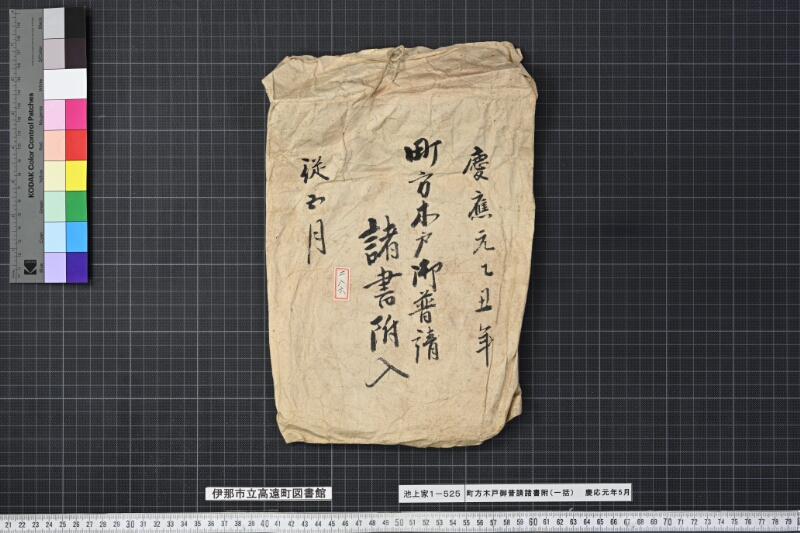 慶應元乙丑年
町方木戸御普請
諸書附入
從五月
二八六
伊那市立高遠町図書館
池上家1－525 町方木戸御普請諸書附（一括） 慶応元年5月
KODAK Color Control Patches